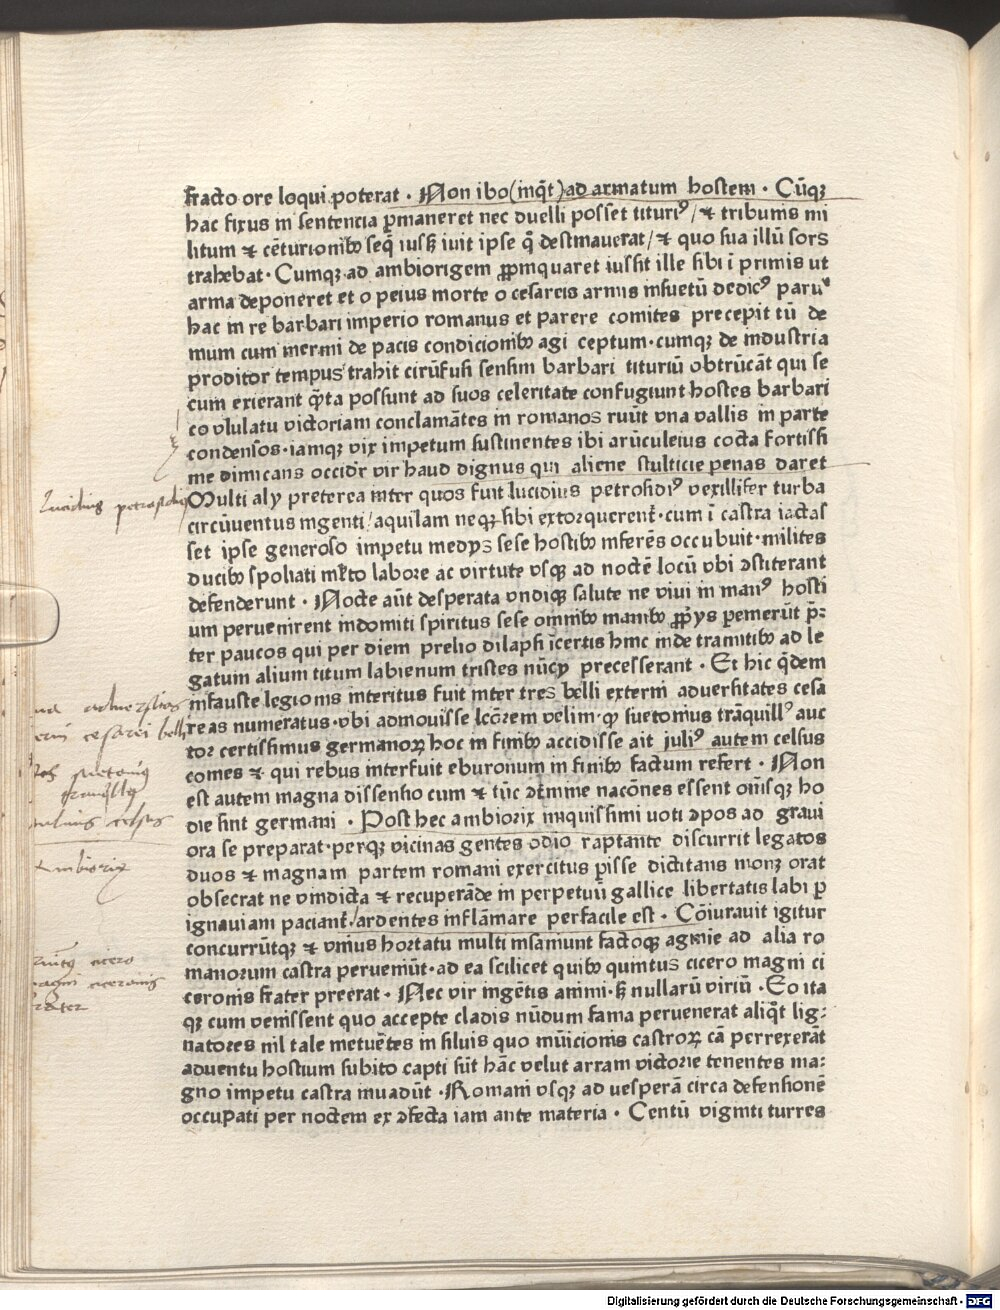 fracto ore loqui poterat · Non ibo (inq̄t) ad armatum hostem · Cūqꝫ
hac fixus in sentencia ꝑmaneret nec duelli posset tituriꝰ / ⁊ tribunis mi
litum ⁊ cēturionibꝰ seq̄ iussis iuit ipse q̄ destinauerat / ⁊ quo sua illū sors
trahebat · Cumqꝫ ad ambiorigem ꝓpinquaret iussit ille sibi ī primis ut
arma deponeret et o peius morte o cesareis armis insuetū dedecꝰ paruit
hac in re barbari imperio romanus et parere comites precepit tū de
mum cum inermi de pacis condicionibꝰ agi ceptum · cumqꝫ de industria
proditor tempus trahit circūfusi sensim barbari tituriū obtrūcāt qui se
cum exierant q̄ta possunt ad suos celeritate confugiunt hostes barbari
co vlulatu victoriam conclamātes in romanos ruūt vna vallis in parte
condensos · iamqꝫ vix impetum sustinentes ibi arūculeius cocta fortissi
me dimicans occidit vir haud dignus qui aliene stulticie penas daret
Multi alij preterea inter quos fuit lucidius petrosidiꝰ vexillifer turba
circūuentus ingenti / aquilam neqꝫ sibi extorquerent · cum ī castra iactas
set ipse generoso impetu medijs sese hostibꝰ inferēs occubuit · milites
ducibꝰ spoliati ml̄to labore ac virtute vsqꝫ ad noctē locū vbi ↄstiterant
defenderunt · Nocte aūt desperata vndiqꝫ salute ne viui in manꝰ hosti
um peruenirent indomiti spiritus sese omnibꝰ manibꝰ ꝓprijs ꝑemerūt p̄
ter paucos qui per diem prelio dilapsi īcertis hinc inde tramitibꝰ ad le
gatum alium titum labienum tristes nūcij precesserant · Et hic q̄dem
infauste legionis interitus fuit inter tres belli externi aduersitates cesa
reas numeratus · vbi admouisse lc̄orem velim · ꝙ suetonius trāquillꝰ auc
tor certissimus germanoꝝ hoc in finibꝰ accidisse ait juliꝰ autem celsus
comes ⁊ qui rebus interfuit eburonum in finibꝰ factum refert · Non
est autem magna dissensio cum ⁊ tūc ↄtermine nacōnes essent oīnisqꝫ ho
die sint germani · Post hec ambiorix iniquissimi uoti ↄpos ad graui
ora se preparat · perqꝫ vicinas gentes odio raptante discurrit legatos
duos ⁊ magnam partem romani exercitus ꝑisse dictitans monꝫ orat
obsecrat ne vindicta ⁊ recuperāde in perpetuū gallice libertatis labi ꝑ
ignauiam paciant̄ / ardentes inflāmare perfacile est · Cōiurauit igitur
concurrūtqꝫ ⁊ vnius hortatu multi insaniunt factoqꝫ agmīe ad alia ro
manorum castra perueniūt · ad ea scilicet quibꝰ quintus cicero magni ci
ceronis frater preerat · Nec vir ingētis animi · sꝫ nullarū viriū · Eo ita
qꝫ cum venissent quo accepte cladis nūdum fama peruenerat aliq̄t lig⸗
natores nil tale metuētes in siluis quo mūicionis castroꝝ cā perrexerāt
aduentu hostium subito capti sūt hāc velut arram victorie tenentes ma⸗
gno impetu castra inuadūt · Romani vsqꝫ ad uesperā circa defensionē
occupati per noctem ex ↄfecta iam ante materia · Centū viginti turres
Lucidius petrosidiꝰ
aduersitas
cesarei belli
suetoniꝰ
tranqllꝰ
celsus
Ambiorix
cicero
ciceronis
frater
Digitalisierung gefördert durch die Deutsche Forschungsgemeinschaft - DFG